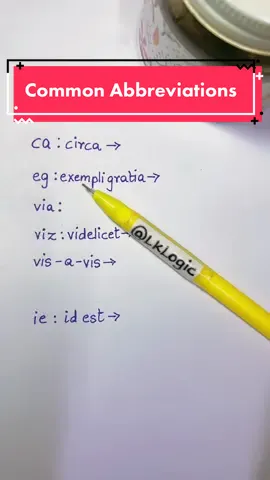 Common Abbreviations
ca : circa →
eg : exempli gratia →
via :
viz : videlicet →
@LKLogic
vis-a-vis →
ie : id est →